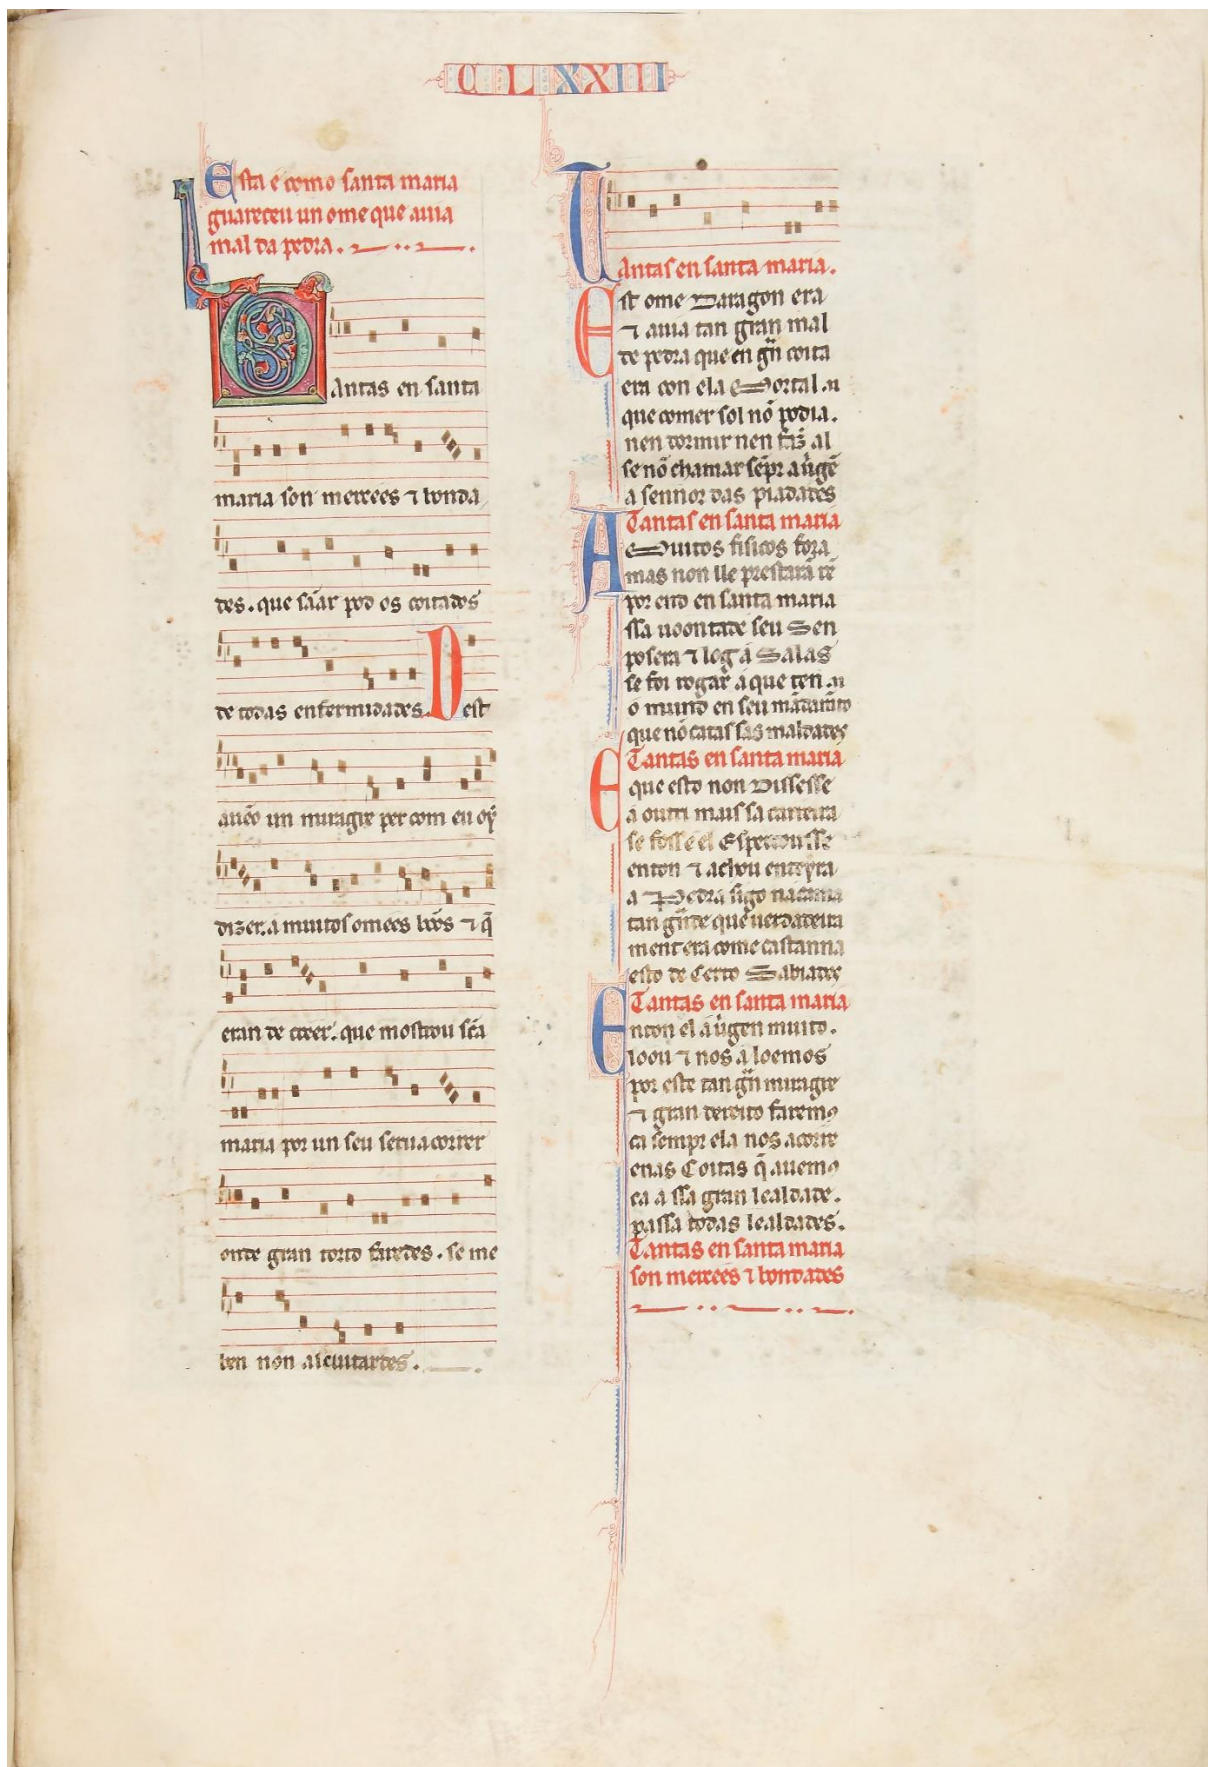 CLXXIII
Esta é como santa maria
guareceu un ome que auia
mal da pedra.
Tantas en santa
maria son mercees ⁊ bonda
des. que sãar pod os coitados
de todas enfermidades. Dest
auẽo un miragre per com eu oý
dizer. a muitos omees bõos ⁊ q̃
eran de creer. que mostrou scã
maria por un seu seruacorrer
onde gran torto faredes. se me
ben non ascuitardes.
Tantas en santa maria.
Est ome Daragon era
⁊ auia tan gran mal
de pedra que en gñ coita
era con ela Mortal.
que comer sol nõ podia.
nen dormir nen faz̃ al
se nõ chamar sẽpr a uᷓgẽ
a sennor das piadades
Tantas en santa maria
A Muitos fisicos fora
mas non lle prestarã rẽ
por end en santa maria
ssa uoontade seu Sen
posera ⁊ log á Salas
se foi rogar á que ten
o mund en seu mãdamẽto
que nõ catas sas maldades
Tantas en santa maria
E que esto non Dissesse
a outri mais sa carreira
se foss e el Espertousse
enton ⁊ achou enteyra
a Pedra sigo na cama
tan gñde que uerdadeira
ment era come castanna
esto de Certo Sabiades
Tantas en santa maria
Enton el a uᷓgen muito.
loou ⁊ nos a loemos
por este tan gñ miragre
⁊ gran dereito faremꝯ
ca sempr ela nos acorre
enas Coitas q̃ auemꝯ
ca a ssa gran lealdade.
passa todas lealdades.
Tantas en santa maria
son mercees ⁊ bondades